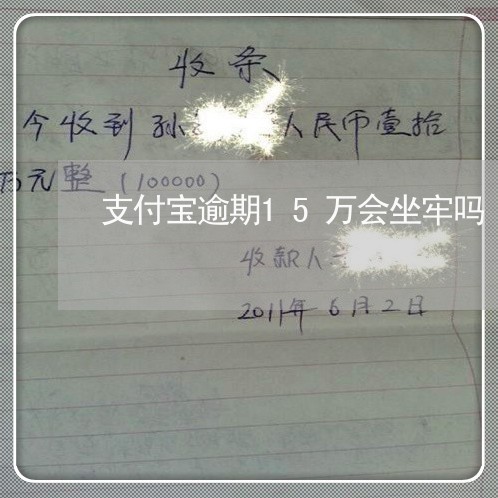 收条
今收到孙 人民币壹拾
万元整（100000）
支付宝逾期15万会坐牢吗
收款人
2011年6月2日